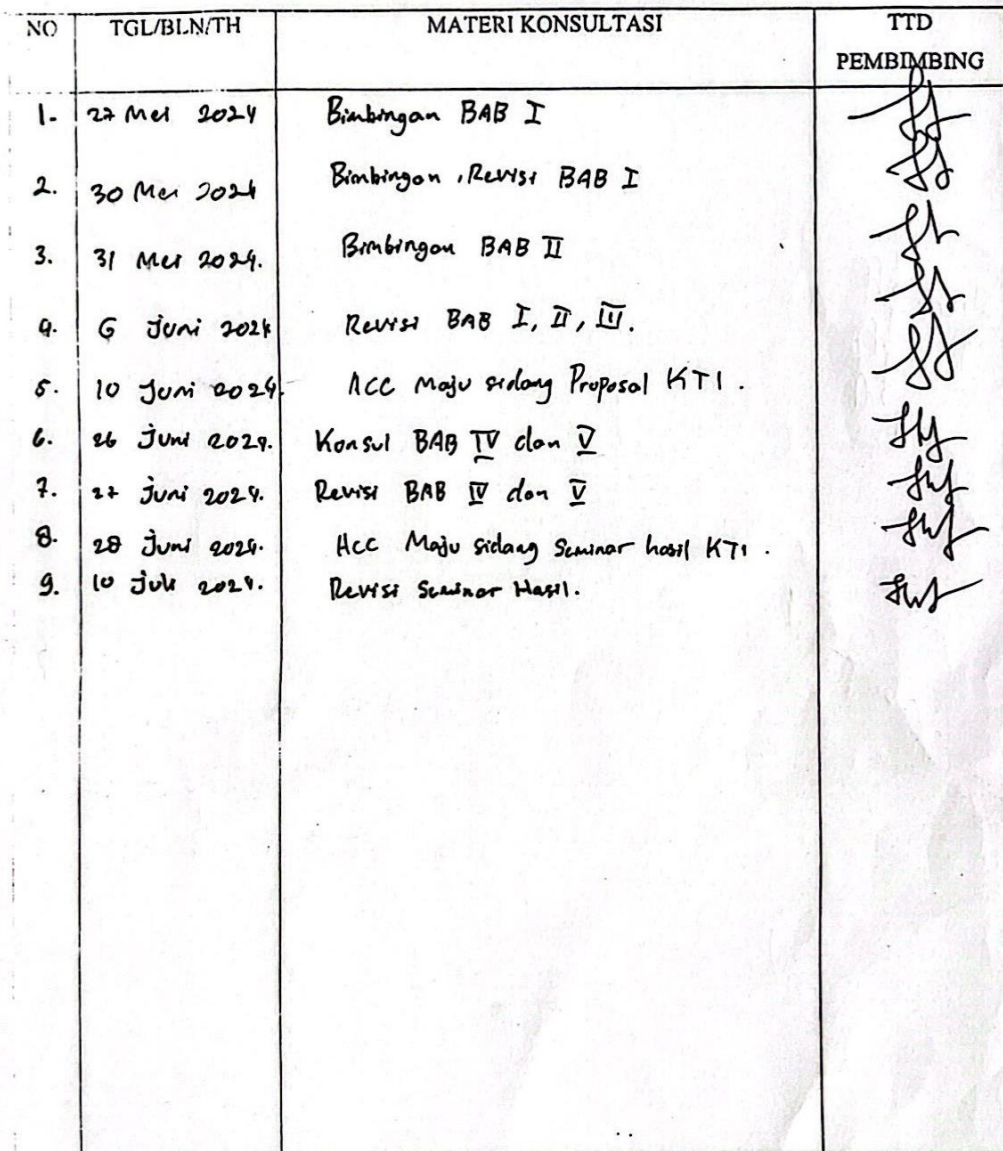 NO TGL/BLN/TH MATERI KONSULTASI TTD
PEMBIMBING
1. 27 Mei 2024 Bimbingan BAB I
2. 30 Mei 2024 Bimbingan, Revisi BAB I
3. 31 Mei 2024. Bimbingan BAB II
4. 6 Juni 2024 Revisi BAB I, II, III.
5. 10 Juni 2024. ACC Maju sidang Proposal KTI.
6. 26 Juni 2024. Konsul BAB IV dan V
7. 27 Juni 2024. Revisi BAB IV dan V
8. 28 Juni 2024. Acc Maju sidang Seminar hasil KTI.
9. 10 Juli 2024. Revisi Seminar Hasil.